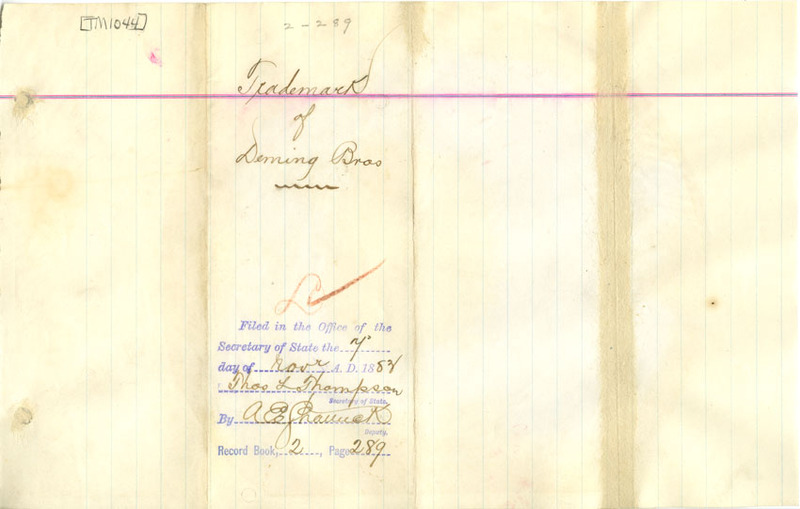 TM1044
2-289
Trademark
of
Deming Bros
Filed in the Office of the
Secretary of State the 7th
day of Novr A. D. 188
Thos L Thompson
Secretary of State.
By A E
Deputy.
Record Book, 2, Page 289